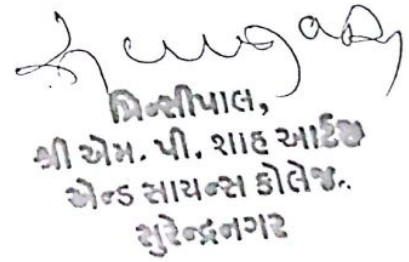 પ્રિન્સીપાલ,
શ્રી એમ. પી. શાહ આર્ટસ
એન્ડ સાયન્સ કોલેજ.
સુરેન્દ્રનગર